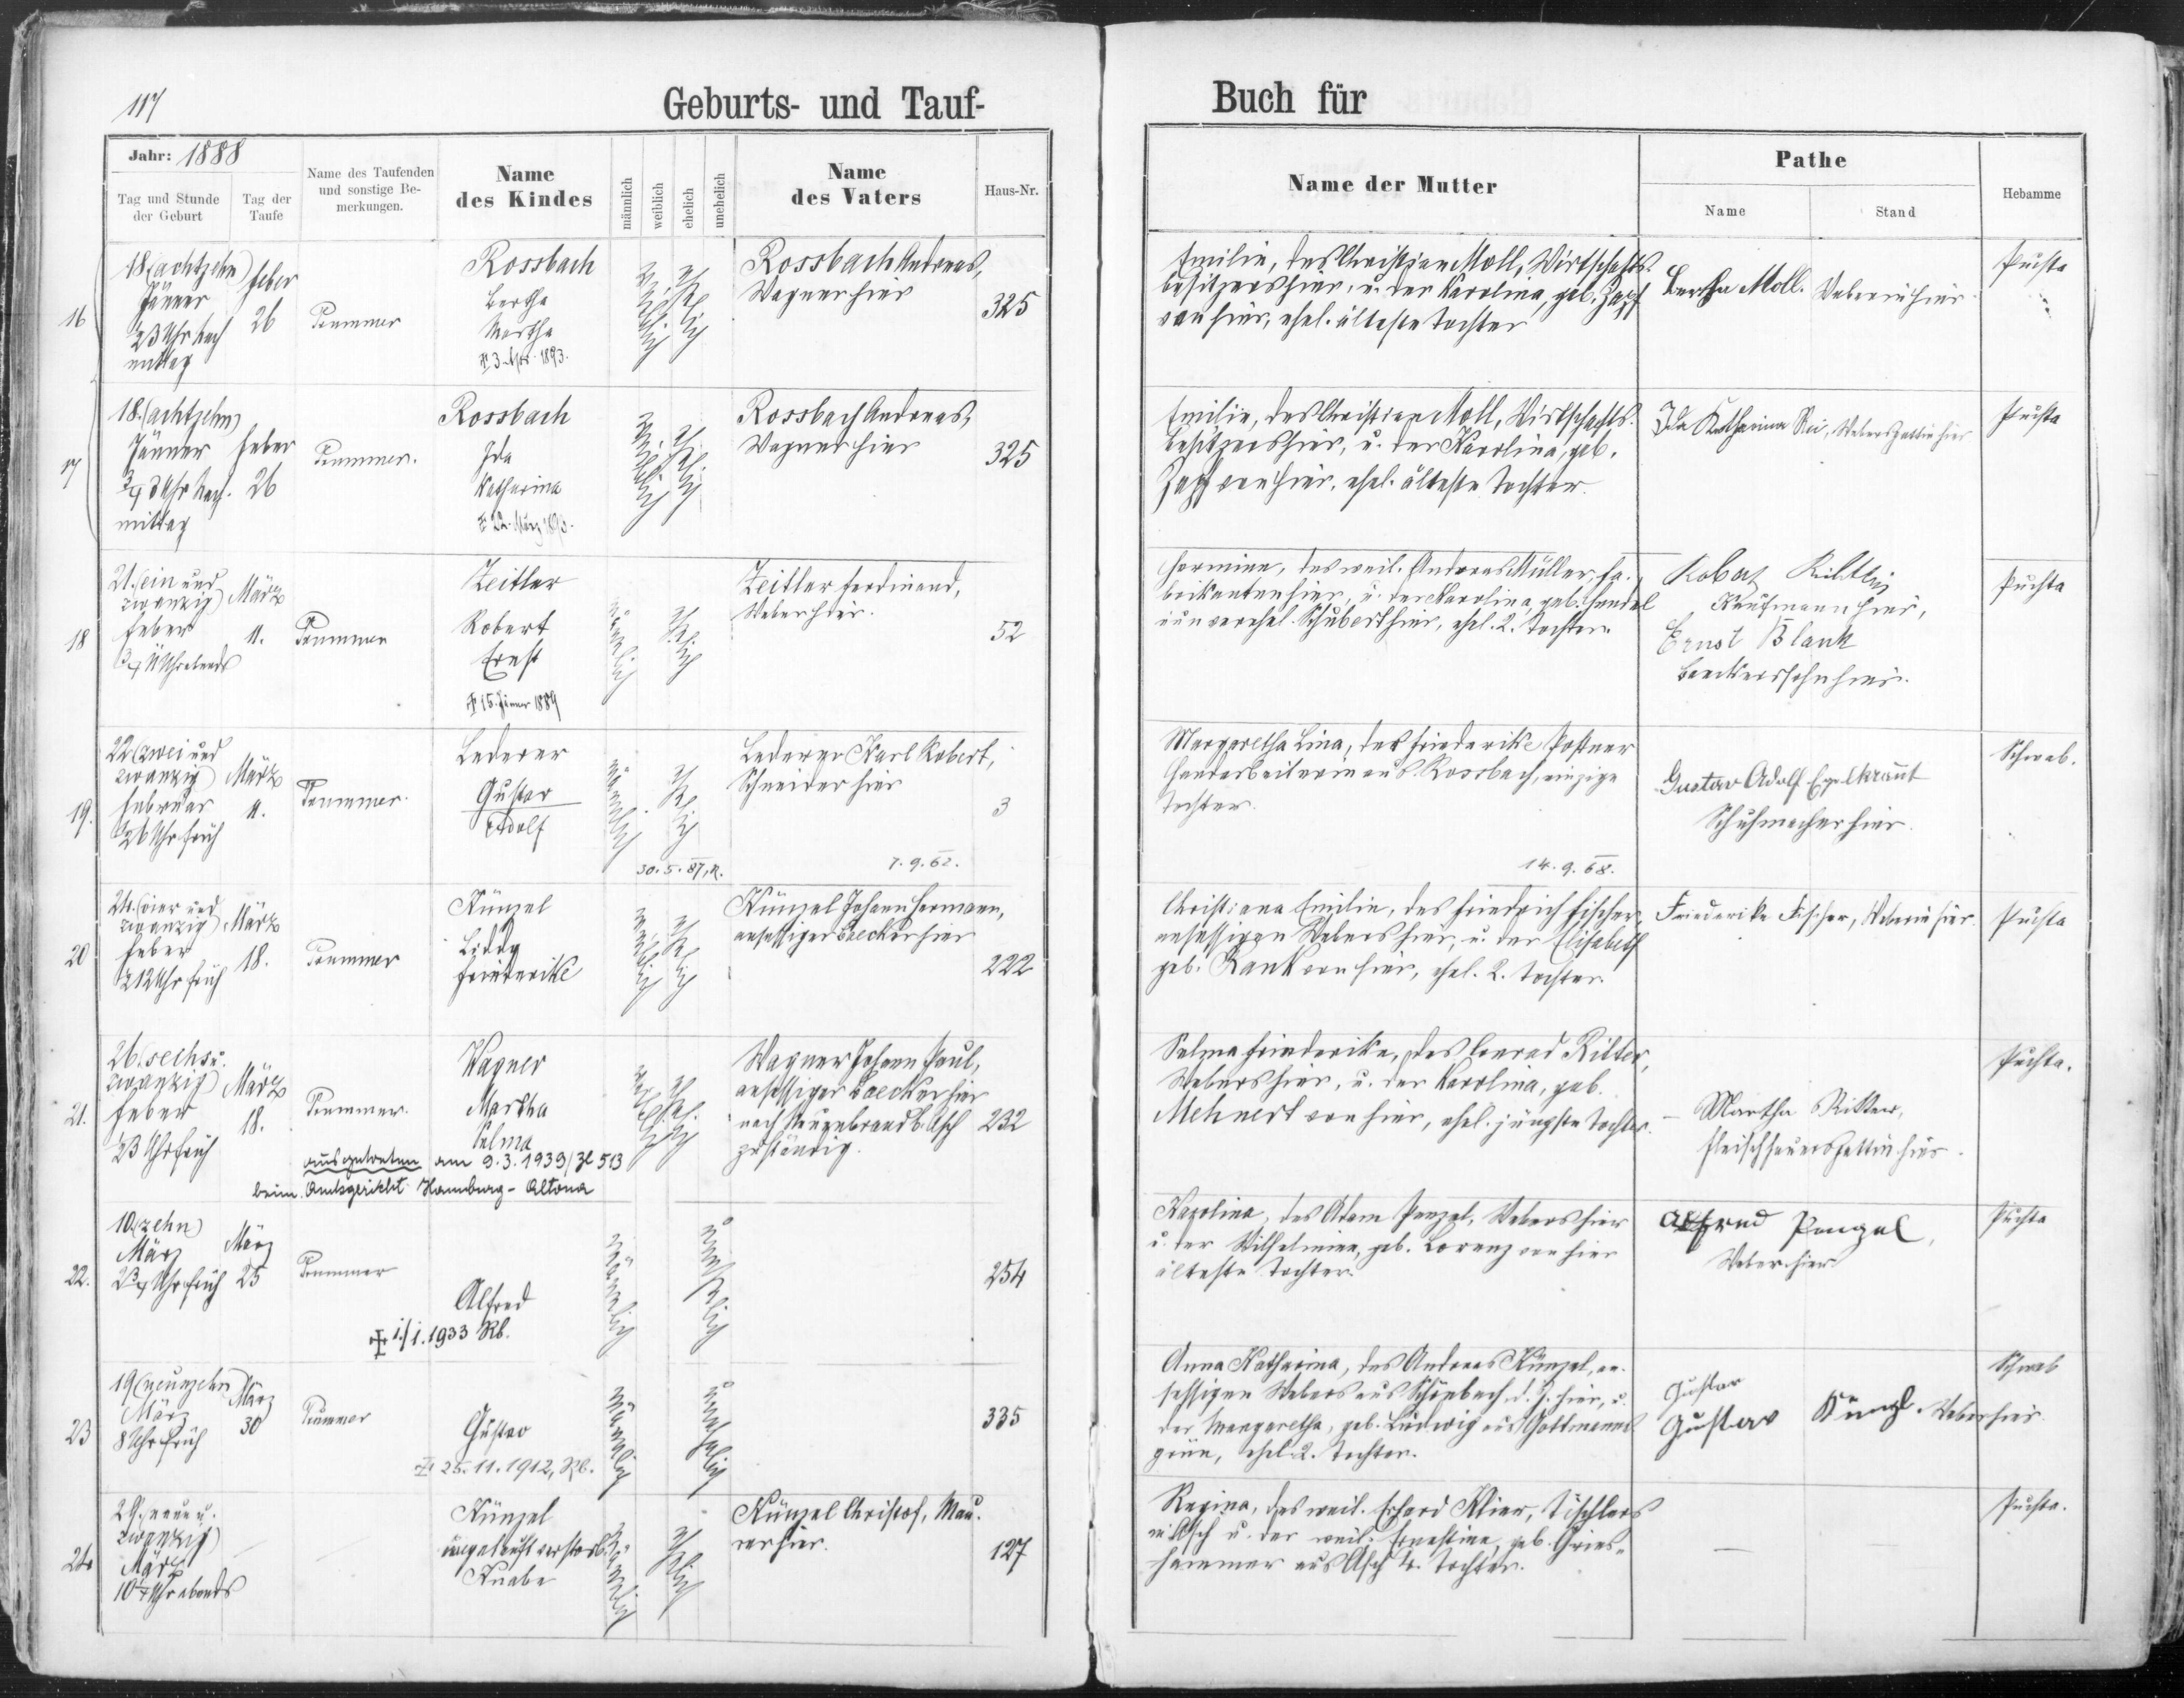 117
Geburts- und Tauf-
Buch für
Jahr: 1888
Tag und Stunde der Geburt
Tag der Taufe
Name des Taufenden und sonstige Bemerkungen.
Name des Kindes
männlich
weiblich
ehelich
unehelich
Name des Vaters
Haus-Nr.
Name der Mutter
Pathe
Name
Stand
Hebamme
16
18. (achtzehn)
Jänner
½3 Uhr Nach
mittag
Feber
26
Trummer
Rossbach
Bertha
Martha
3. Apr. 1893.
weiblich
ehelich
Rossbach Andreas,
Wagner hier
325
Emilie, des Christian Moll, Wirtschafts-
besitzers hier, u. der Karolina, geb. Zapf
von hier, ehel. älteste Tochter
Bertha Moll.
Weberin hier
Puchta
17
18. (achtzehn)
Jänner
¾3 Uhr Nach-
mittag
Feber
26
Trummer.
Rossbach
Ida
Katharina
22. März 1893.
weiblich
ehelich
Rossbach Andreas,
Wagner hier
325
Emilie, des Christian Moll, Wirtschafts-
besitzers hier, u. der Karolina, geb.
Zapf von hier, ehel. älteste Tochter.
Ida Katharina
Webersgattin hier
Puchta
18
21. (ein und
zwanzig)
Feber
Uhr abends
März
11.
Trummer
Zeitler
Robert
Ernst
15. Jänner 1889
männlich
ehelich
Zeitler Ferdinand,
Weber hier.
52
Hermine, des weil. Andreas Müller, Fa-
brikanten hier, u. der Karolina, geb. Hendel
nun verehel. Schubert hier, ehel. 2. Tochter.
Robert
Kaufmann hier,
Ernst Blank
Baeckerssohn hier.
Puchta
19.
22 (zwei und
zwanzig)
Februar
½6 Uhr früh
März
11.
Trummer
Lederer
Gustav
Adolf
männlich
ehelich
Lederer Karl Robert,
Schneider hier
3
30. 5. 87, R.
7. 9. 62.
Margaretha Lina, der Friederike Postner
Handarbeiterin aus Rossbach, einzige
Tochter.
14. 9. 68.
Gustav Adolf Egelkraut
Schuhmacher hier.
Schwab.
20
24. (vier und
zwanzig)
Feber
½12 Uhr früh
März
18.
Trummer
Künzel
Liddy
Friederike
weiblich
ehelich
Künzel Johann Hermann,
ansässiger Baecker hier
222
Christiana Emilie, des Friedrich Fischer,
ansässigen Webers hier, u. der Elisabeth
geb. Rank von hier, ehel. 2. Tochter.
Friederike Fischer, Weberin hier
Puchta
21.
26. (sechs u.
zwanzig)
Feber
½3 Uhr früh
März
18.
Trummer.
Wagner
Martha
Selma
weiblich
ehelich
ausgetreten am 9. 3. 1939/Zl 513
beim Amtsgericht Hamburg - Altona
Wagner Johann Paul,
ansässiger Baecker hier
nach Neuenbrand b. Asch
zuständig.
232
Selma Friederike, des Conrad Ritter,
Webers hier, u. der Karolina, geb.
Mehnert von hier, ehel. jüngste Tochter.
Martha Ritter,
Fleischhauersgattin hier.
Puchta.
22.
10. (zehn)
März
2¾ Uhr früh
März
25
Trummer
Alfred
1./1. 1933 Rb.
männlich
unehelich
254
Karolina, des Adam Penzel, Webers hier
u. der Wilhelmine, geb. Lorenz von hier
älteste Tochter.
Alfred Penzel,
Weber hier
Puchta
23
19 (neunzehn)
März
8 Uhr früh
März
30
Trummer
Gustav
25. 11. 1912, Rb.
männlich
unehelich
335
Anna Katharina, des Andreas Künzel, an-
sässigen Webers aus Schönbach d. Z. hier, u.
der Margaretha, geb. Ludwig aus Gottmanns
grün, ehel. 2. Tochter.
Gustav
Gustav Künzl. Weber hier.
Schwab
24
29. (neun u.
zwanzig)
März
10¼ Uhr abends
Künzel
ungetauft verstorb.
Knabe
männlich
ehelich
Künzel Christof, Mau-
rer hier.
127
Regina, des weil. Erhard Klier, Tischlers
in Asch u. der weil. Ernestine, geb. Gries-
hammer aus Asch 4. Tochter.
Puchta.